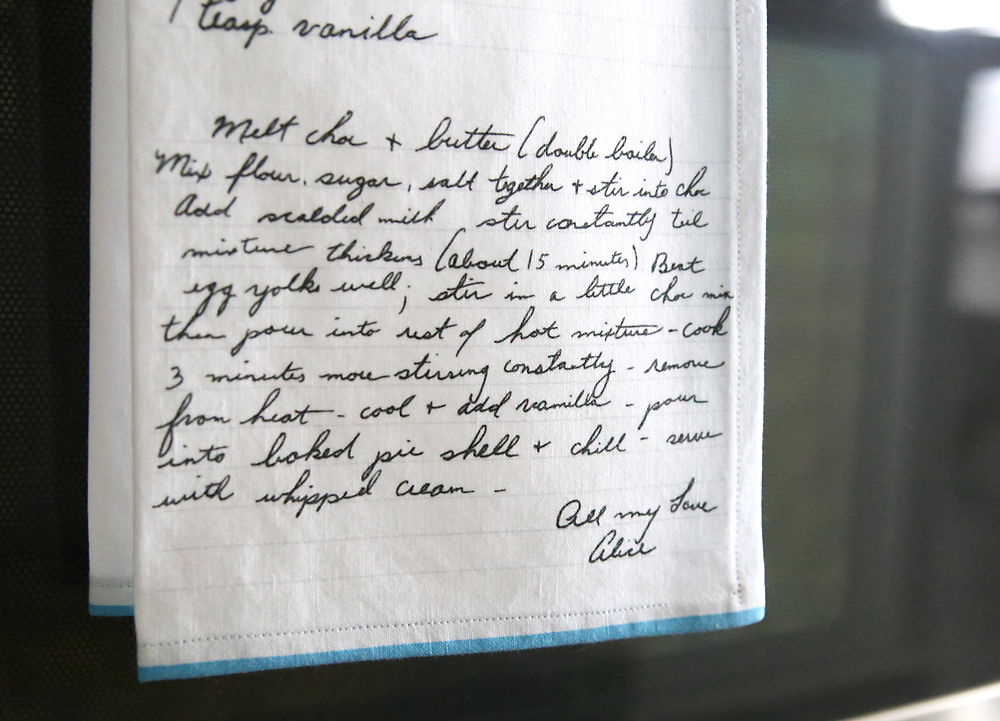 teasp. vanilla
Melt choc + butter (double boiler)
Mix flour, sugar, salt together + stir into choc
Add scalded milk stir constantly til
mixture thickens (about 15 minutes) Beat
egg yolks well; stir in a little choc mix
then pour into rest of hot mixture - cook
3 minutes more stirring constantly - remove
from heat - cool + add vanilla - pour
into baked pie shell + chill - serve
with whipped cream -
All my Love
Alice